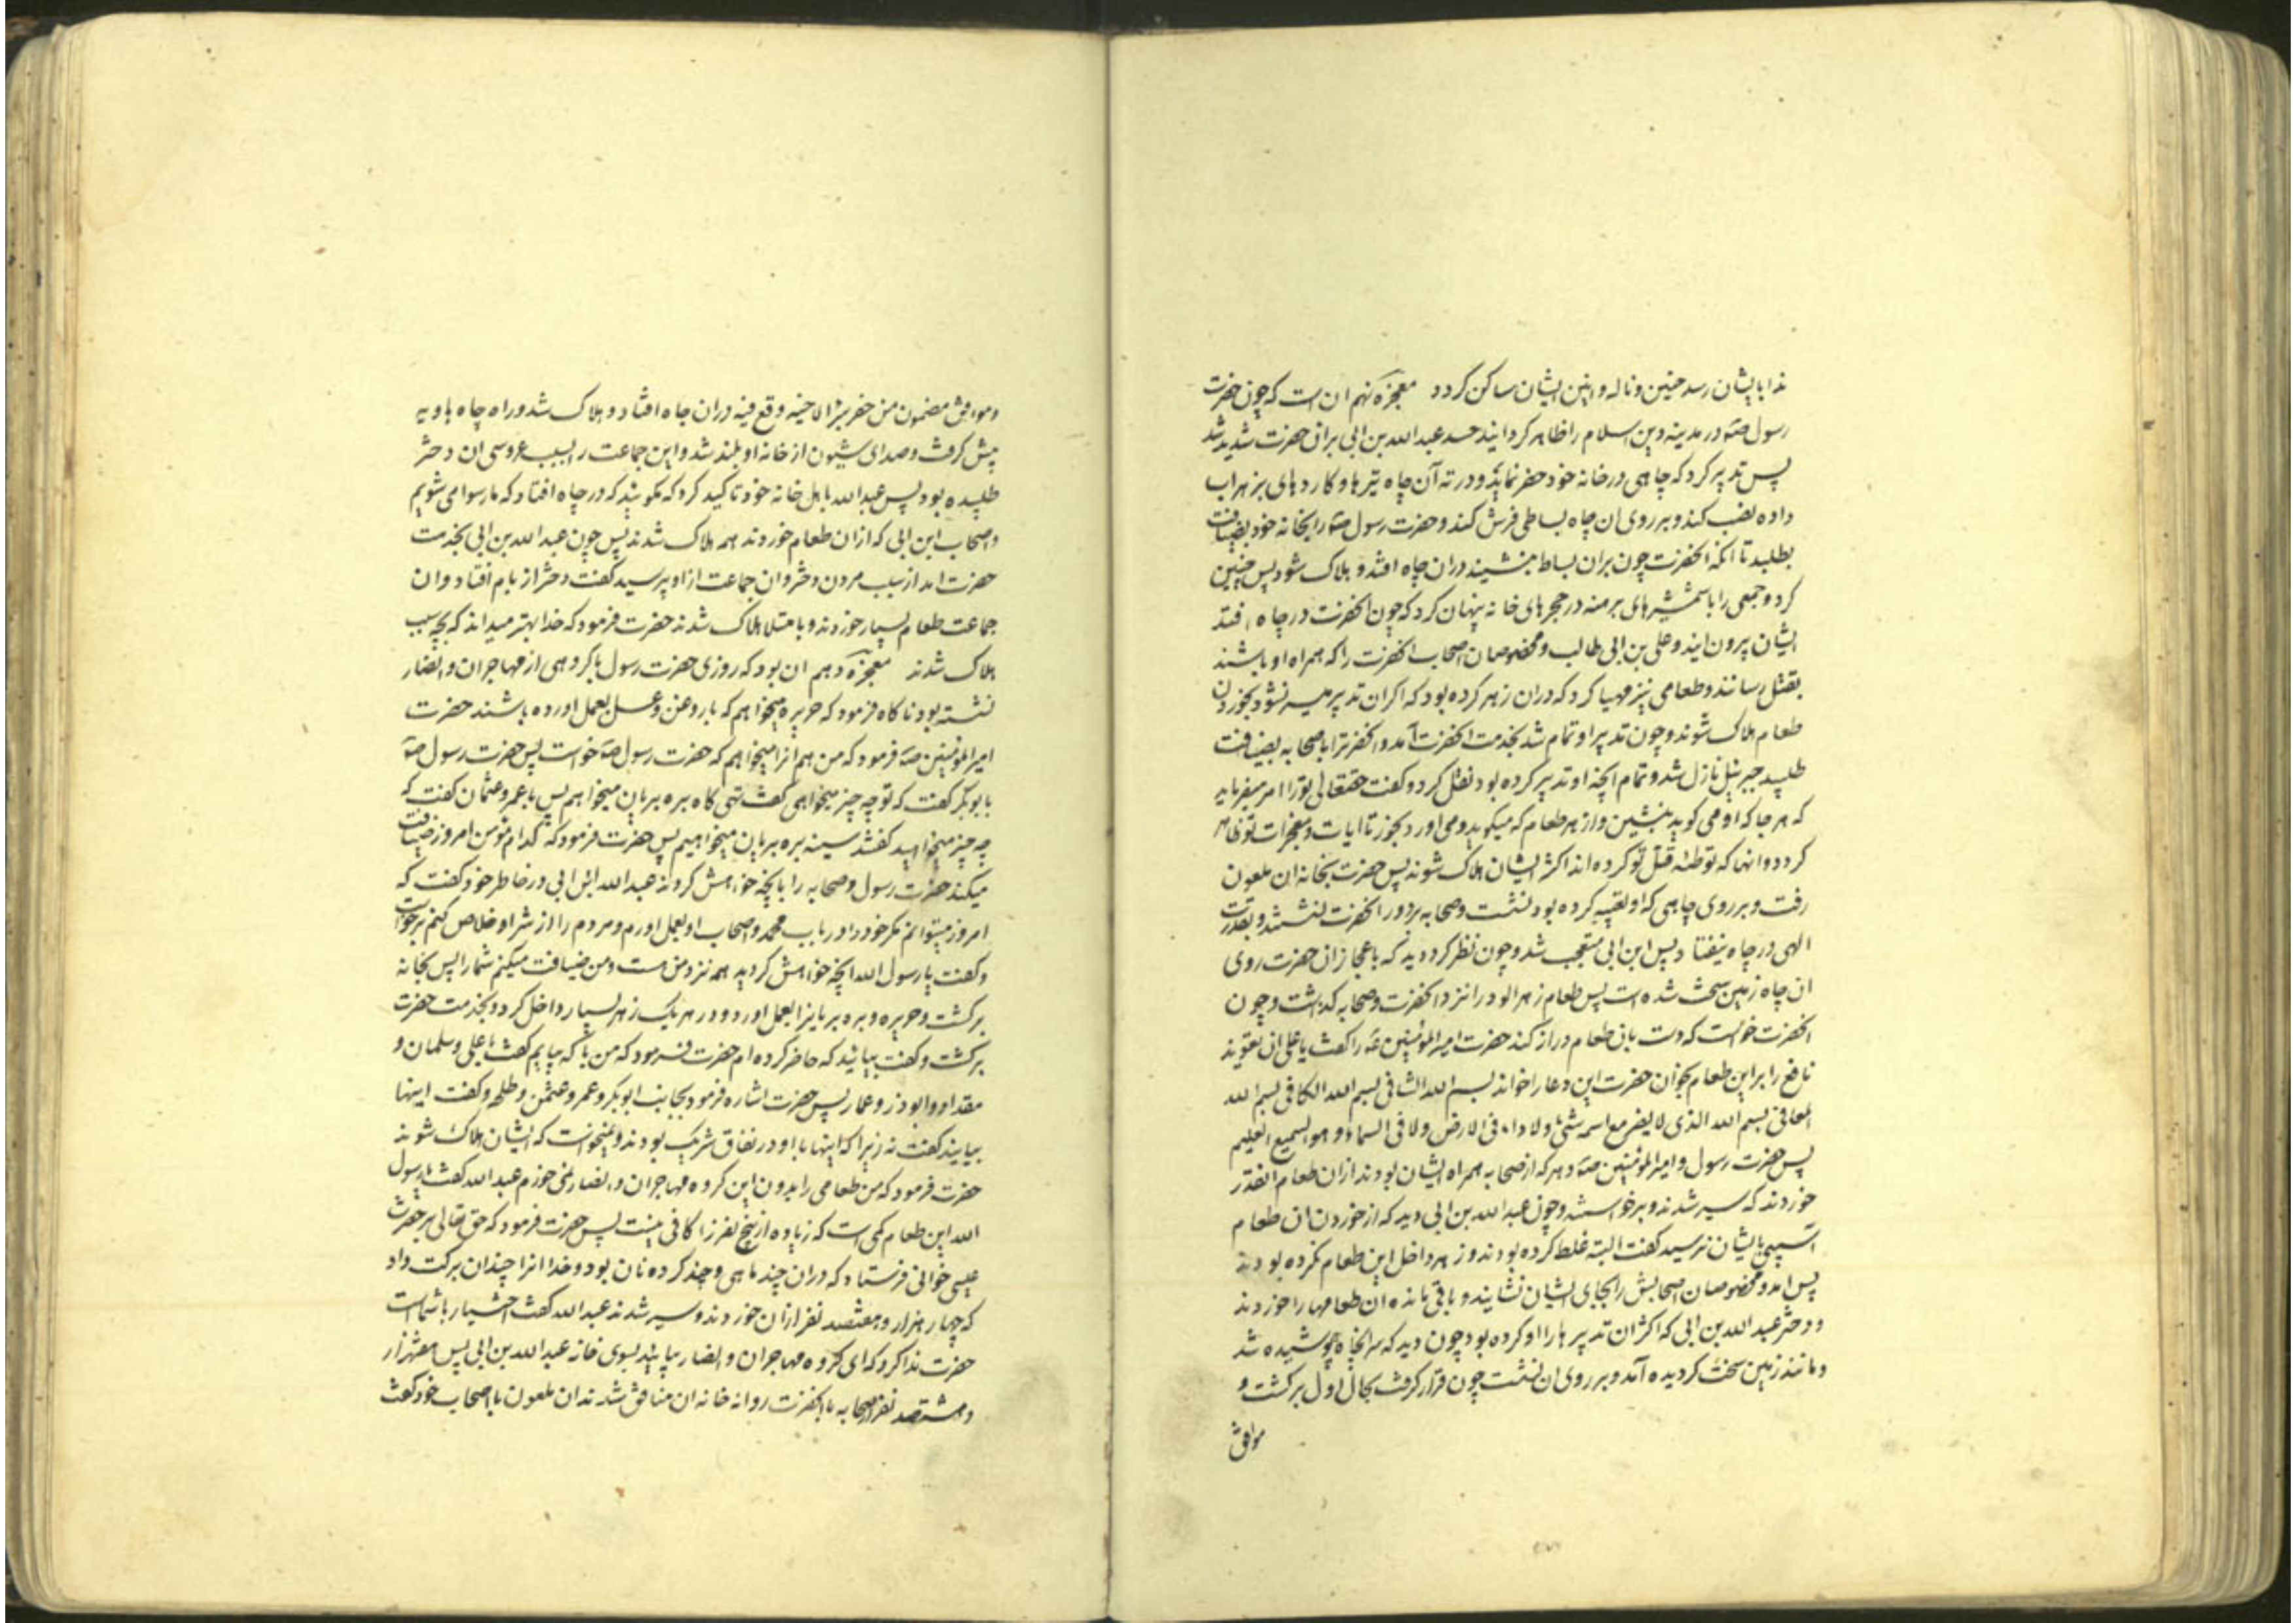 ندا بایشان رسد حنین و ناله و انین ایشان ساکن کردد معجزه نهم ان است که چون حضرت
رسول صه در مدینه دین اسلام را ظاهر کردانید حسد عبد الله بن ابی بران حضرت شدید شد
پس تدبیر کرد که چاهی در خانه خود حفر نماید و در ته آن چاه تیرها و کاردهای بزهراب
داده نصب کند و بر روی ان چاه بساطی فرش کند و حضرت رسول صه را بخانه خود بضیافت
بطلبد تا انکه انحضرت چون بران بساط بنشیند دران چاه افتد و هلاک شود پس چنین
کرد و جمعی را با شمشیرهای برهنه در حجرهای خانه پنهان کرد که چون انحضرت در چاه افتد
ایشان بیرون ایند و علی بن ابی طالب و مخصوصان اصحاب انحضرت را که همراه او باشند
بقتل رسانند و طعامی نیز مهیا کرد که دران زهر کرده بود که اکر ان تدبیر میسر نشود بخوردن
طعام هلاک شوند و چون تدبیر او تمام شد بخدمت انحضرت آمد و انحضرترا با صحابه بضیافت
طلبید جبرئیل نازل شد و تمام انچه او تدبیر کرده بود نقل کرد و کفت حقتعالی تو را امر میفرماید
که هر جا که او می کوید بنشین و از هر طعام که میکوید و می اورد بخور تا ایات و معجزات تو ظاهر
کردد و انها که توطئه قتل تو کرده اند اکثر ایشان هلاک شوند پس حضرت بخانه ان ملعون
رفت و بر روی چاهی که او تعبیه کرده بود نشست و صحابه بر دور انحضرت نشستند و بقدرت
الهی در چاه نیفتاد پس ابن ابی متعجب شد و چون نظر کرد دید که باعجاز ان حضرت روی
ان چاه زمین سخت شده است پس طعام زهرالود را نزد انحضرت و صحابه کذاشت و چون
انحضرت خواست که دست بان طعام دراز کند حضرت امیر المؤمنین عه را کفت یا علی ان تعویذ
نافع را بر این طعام بخوان حضرت این دعا را خواند بسم الله الشافی بسم الله الکافی بسم الله
المعافی بسم الله الذی لا یضر مع اسمه شئ ولا داء فی الارض ولا فی السماء و هو السمیع العلیم
پس حضرت رسول و امیر المؤمنین صه و هر که از صحابه همراه ایشان بودند ازان طعام انقدر
خوردند که سیر شدند و برخواستند و چون عبد الله بن ابی دید که از خوردن ان طعام
آسیبی بایشان نرسید کفت البته غلط کرده بودند و زهر داخل این طعام نکرده بودند
پس امد و مخصوصان اصحابش را بجای ایشان نشانید و باقی مانده ان طعامها را خوردند
و دختر عبد الله بن ابی که اکثر ان تدبیرها را او کرده بود چون دید که سر انچاه پوشیده شد
و مانند زمین سخت کردیده آمد و بر روی ان نشست چون قرار کرفت بحال اول برکشت و
موافق
و موافق مضمون من حفر بئرا لاخیه وقع فیه دران چاه افتاد و هلاک شد و راه چاه هاویه
پیش کرفت و صدای شیون از خانه او بلند شد و این جماعت را بسبب عروسی ان دختر
طلبیده بود پس عبد الله باهل خانه خود تاکید کرد که مکویند که در چاه افتاد که ما رسوا می شویم
و اصحاب ابن ابی که ازان طعام خوردند همه هلاک شدند پس چون عبد الله بن ابی بخدمت
حضرت امد از سبب مردن دختر و ان جماعت ازاو پرسید کفت دختر از بام افتاد و ان
جماعت طعام بسیار خوردند و بامتلا هلاک شدند حضرت فرمود که خدا بهتر میداند که بچه سبب
هلاک شدند معجزه دهم ان بود که روزی حضرت رسول با کروهی از مهاجران و انصار
نشسته بود ناکاه فرمود که حریره میخواهم که با روغن و عسل بعمل اورده باشند حضرت
امیر المؤمنین صه فرمود که من هم انرا میخواهم که حضرت رسول صه خواست پس حضرت رسول صه
با بوبکر کفت که تو چه چیز میخواهی کفت تهی کاه بره بریان میخواهم پس با عمر و عثمان کفت که
چه چیز میخواهید کفتند سینه بره بریان میخواهیم پس حضرت فرمود که کدام مؤمن امروز ضیافت
میکند حضرت رسول و صحابه را بانچه خواهش کردند عبد الله ابن ابی در خاطر خود کفت که
امروز میتوانم مکر خود را در باب محمد و اصحاب او بعمل اورم و مردم را از شر او خلاص کنم برخواست
و کفت یا رسول الله انچه خواهش کردید همه نزد من هست و من ضیافت میکنم شما را پس بخانه
برکشت و حریره و بره بریانرا بعمل اورد و در هر یک زهر بسیار داخل کرد و بخدمت حضرت
برکشت و کفت بیائید که حاضر کرده ام حضرت فرمود که من با که بیایم کفت با علی و سلمان و
مقداد و ابوذر و عمار پس حضرت اشاره فرمود بجانب ابوبکر و عمر و عثمن و طلحه و کفت اینها
بیایند کفت نه زیرا که اینها با او در نفاق شریک بودند و نمیخواست که ایشان هلاک شوند
حضرت فرمود که من طعامی را بدون این کروه مهاجران و انصار نمی خورم عبد الله کفت یا رسول
الله این طعام کمی است که زیاده از پنج نفر را کافی نیست پس حضرت فرمود که حق تعالی بر حضرت
عیسی خوانی فرستاد که دران چند ماهی و چند کرده نان بود و خدا انرا چندان برکت داد
که چهار هزار و هفتصد نفر ازان خوردند و سیر شدند عبد الله کفت اختیار با شماست
حضرت ندا کرد که ای کروه مهاجران و انصار بیائید بسوی خانه عبد الله بن ابی پس هفتهزار
و هشتصد نفر از صحابه با انحضرت روانه خانه ان منافق شدند ان ملعون با اصحاب خود کفت